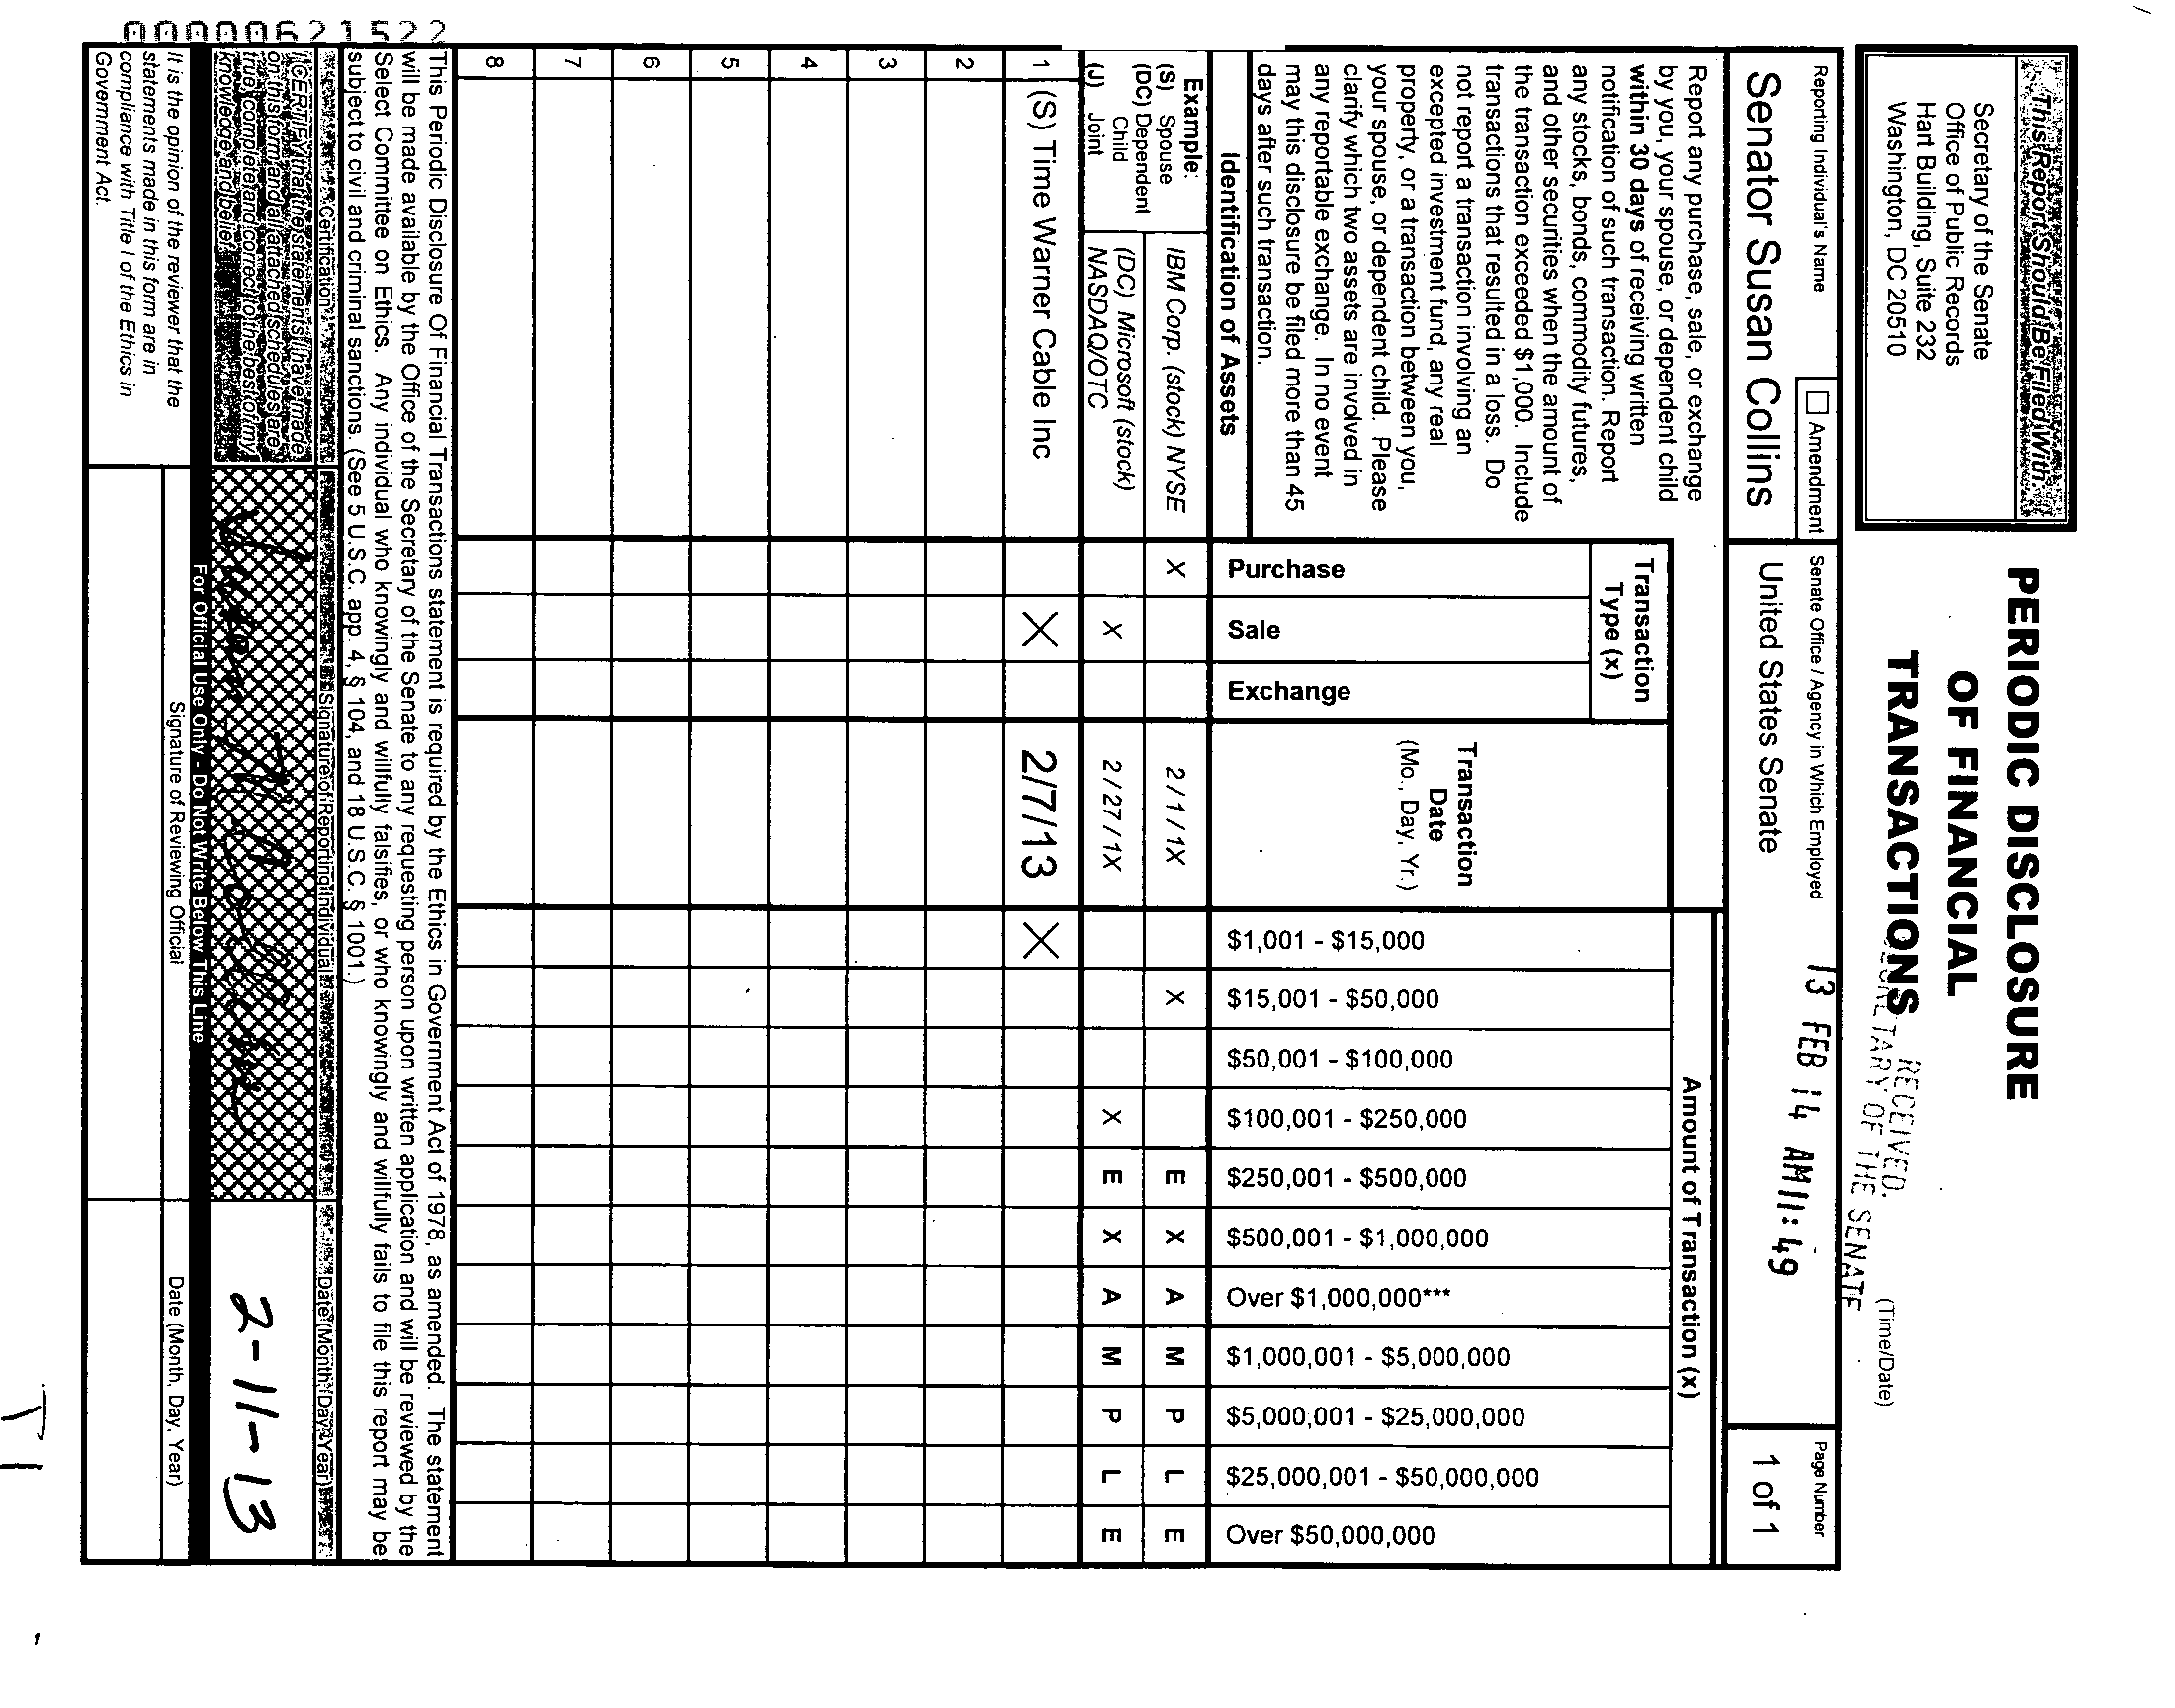 This Report Should Be Filed With:
Secretary of the Senate
Office of Public Records
Hart Building, Suite 232
Washington, DC 20510
PERIODIC DISCLOSURE
OF FINANCIAL
TRANSACTIONS
RECEIVED
SECRETARY OF THE SENATE
(Time/Date)
13 FEB 14 AM 11:49
Reporting Individual's Name
Amendment
Senate Office / Agency in Which Employed
Page Number
Senator Susan Collins
United States Senate
1 of 1
Report any purchase, sale, or exchange
by you, your spouse, or dependent child
within 30 days of receiving written
notification of such transaction. Report
any stocks, bonds, commodity futures,
and other securities when the amount of
the transaction exceeded $1,000. Include
transactions that resulted in a loss. Do
not report a transaction involving an
excepted investment fund, any real
property, or a transaction between you,
your spouse, or dependent child. Please
clarify which two assets are involved in
any reportable exchange. In no event
may this disclosure be filed more than 45
days after such transaction.
Identification of Assets
Transaction
Type (x)
Purchase
Sale
Exchange
Transaction
Date
(Mo., Day, Yr.)
Amount of Transaction (x)
$1,001 - $15,000
$15,001 - $50,000
$50,001 - $100,000
$100,001 - $250,000
$250,001 - $500,000
$500,001 - $1,000,000
Over $1,000,000***
$1,000,001 - $5,000,000
$5,000,001 - $25,000,000
$25,000,001 - $50,000,000
Over $50,000,000
Example:
(S) Spouse
(DC) Dependent
Child
(J) Joint
IBM Corp. (stock) NYSE X 2/1/1X X E X A M P L E
(DC) Microsoft (stock)
NASDAQ/OTC X 2/27/1X X E X A M P L E
1 (S) Time Warner Cable Inc X 2/7/13 X
2
3
4
5
6
7
8
This Periodic Disclosure Of Financial Transactions statement is required by the Ethics in Government Act of 1978, as amended. The statement
will be made available by the Office of the Secretary of the Senate to any requesting person upon written application and will be reviewed by the
Select Committee on Ethics. Any individual who knowingly and willfully falsifies, or who knowingly and willfully fails to file this report may be
subject to civil and criminal sanctions. (See 5 U.S.C. app. 4, § 104, and 18 U.S.C. § 1001.)
Certification
Signature of Reporting Individual
Date (Month, Day, Year)
I CERTIFY that the statements I have made
on this form and all attached schedules are
true, complete and correct to the best of my
knowledge and belief.
2-11-13
For Official Use Only - Do Not Write Below This Line
It is the opinion of the reviewer that the
statements made in this form are in
compliance with Title I of the Ethics in
Government Act.
Signature of Reviewing Official
Date (Month, Day, Year)
00000621522